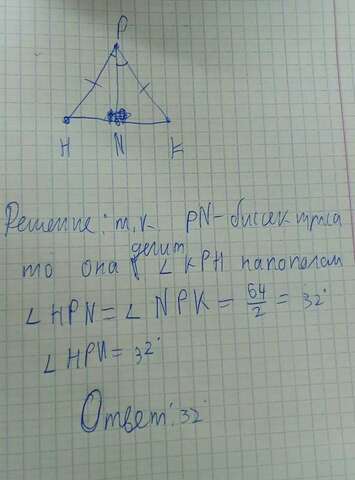 P
H N K
Решение: т.к PN-бисектриса
то она делит ∠ KPH напополам
∠ HPN = ∠ NPK = 64/2 = 32°
∠ HPN = 32°
Ответ: 32°